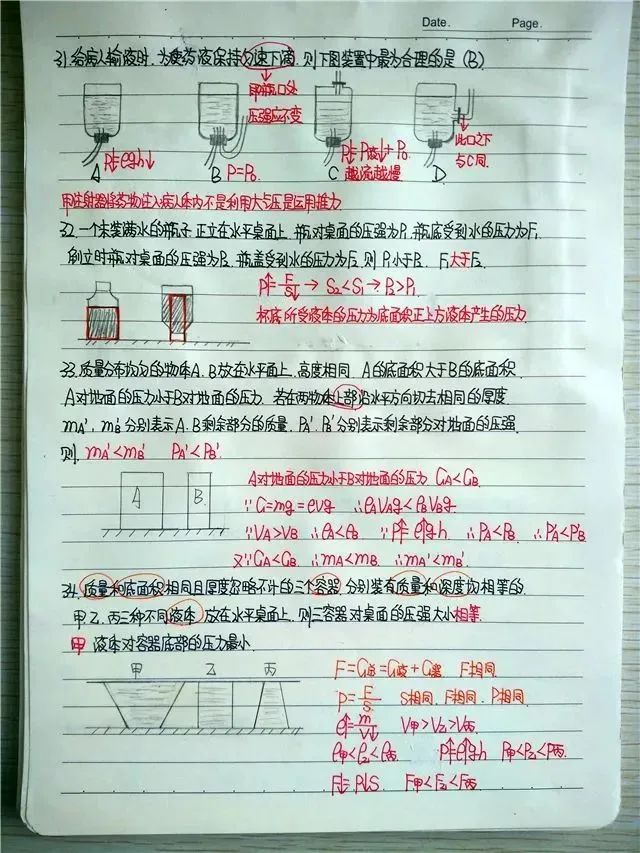 Date. Page.
31. 给病人输液时, 为使药液保持匀速下滴, 则下图装置中最为合理的是 (B)
即瓶口处
压强应不变
A B C D
P↓=ρgh↓ P=P₀ P↓=P液↓+P₀
越流越慢
此口之下
与C同
用注射器将药物注入病人体内不是利用大气压是运用推力
32. 一个未装满水的瓶子, 正立在水平桌面上, 瓶对桌面的压强为P₁, 瓶底受到水的压力为F₁,
倒立时瓶对桌面的压强为P₂, 瓶盖受到水的压力为F₂, 则 P₁小于P₂ F₁大于F₂
P↑=F/S↓ → S₂<S₁ → P₂>P₁
杯底所受液体的压力为底面积正上方液体产生的压力
33. 质量分布均匀的物体A、B放在水平面上, 高度相同, A的底面积大于B的底面积,
A对地面的压力小于B对地面的压力, 若在两物体上部沿水平方向切去相同的厚度
mA', mB'分别表示A、B剩余部分的质量, PA'、PB'分别表示剩余部分对地面的压强
则 mA'<mB' PA'<PB'
A B
A对地面的压力小于B对地面的压力 GA<GB
∵G=mg=ρvg ∴ρAVAg<ρBVBg
∵VA>VB ∴ρA<ρB ∵P↑=ρ↑gh ∴PA<PB ∴PA'<PB'
又∵GA<GB ∴mA<mB ∴mA'<mB'
34. 质量和底面积相同且厚度忽略不计的三个容器, 分别装有质量和深度均相等的
甲、乙、丙三种不同液体, 放在水平桌面上, 则三容器对桌面的压强大小相等
甲 液体对容器底部的压力最小
甲 乙 丙
F=G总=G液+G器 F相同
P=F/S S相同, F相同, P相同
ρ↑=m/V↓ V甲>V乙>V丙
ρ甲<ρ乙<ρ丙 P↑=ρ↑gh P甲<P乙<P丙
F↓=P↓S F甲<F乙<F丙